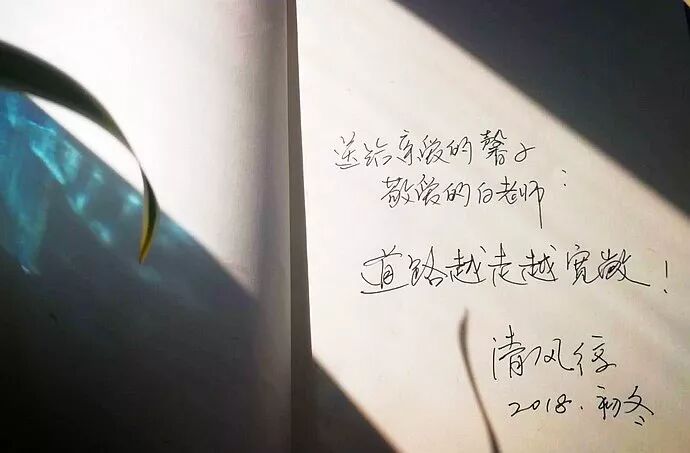 送给亲爱的馨子
敬爱的白老师:
道路越走越宽敞!
清风徐
2018.初冬